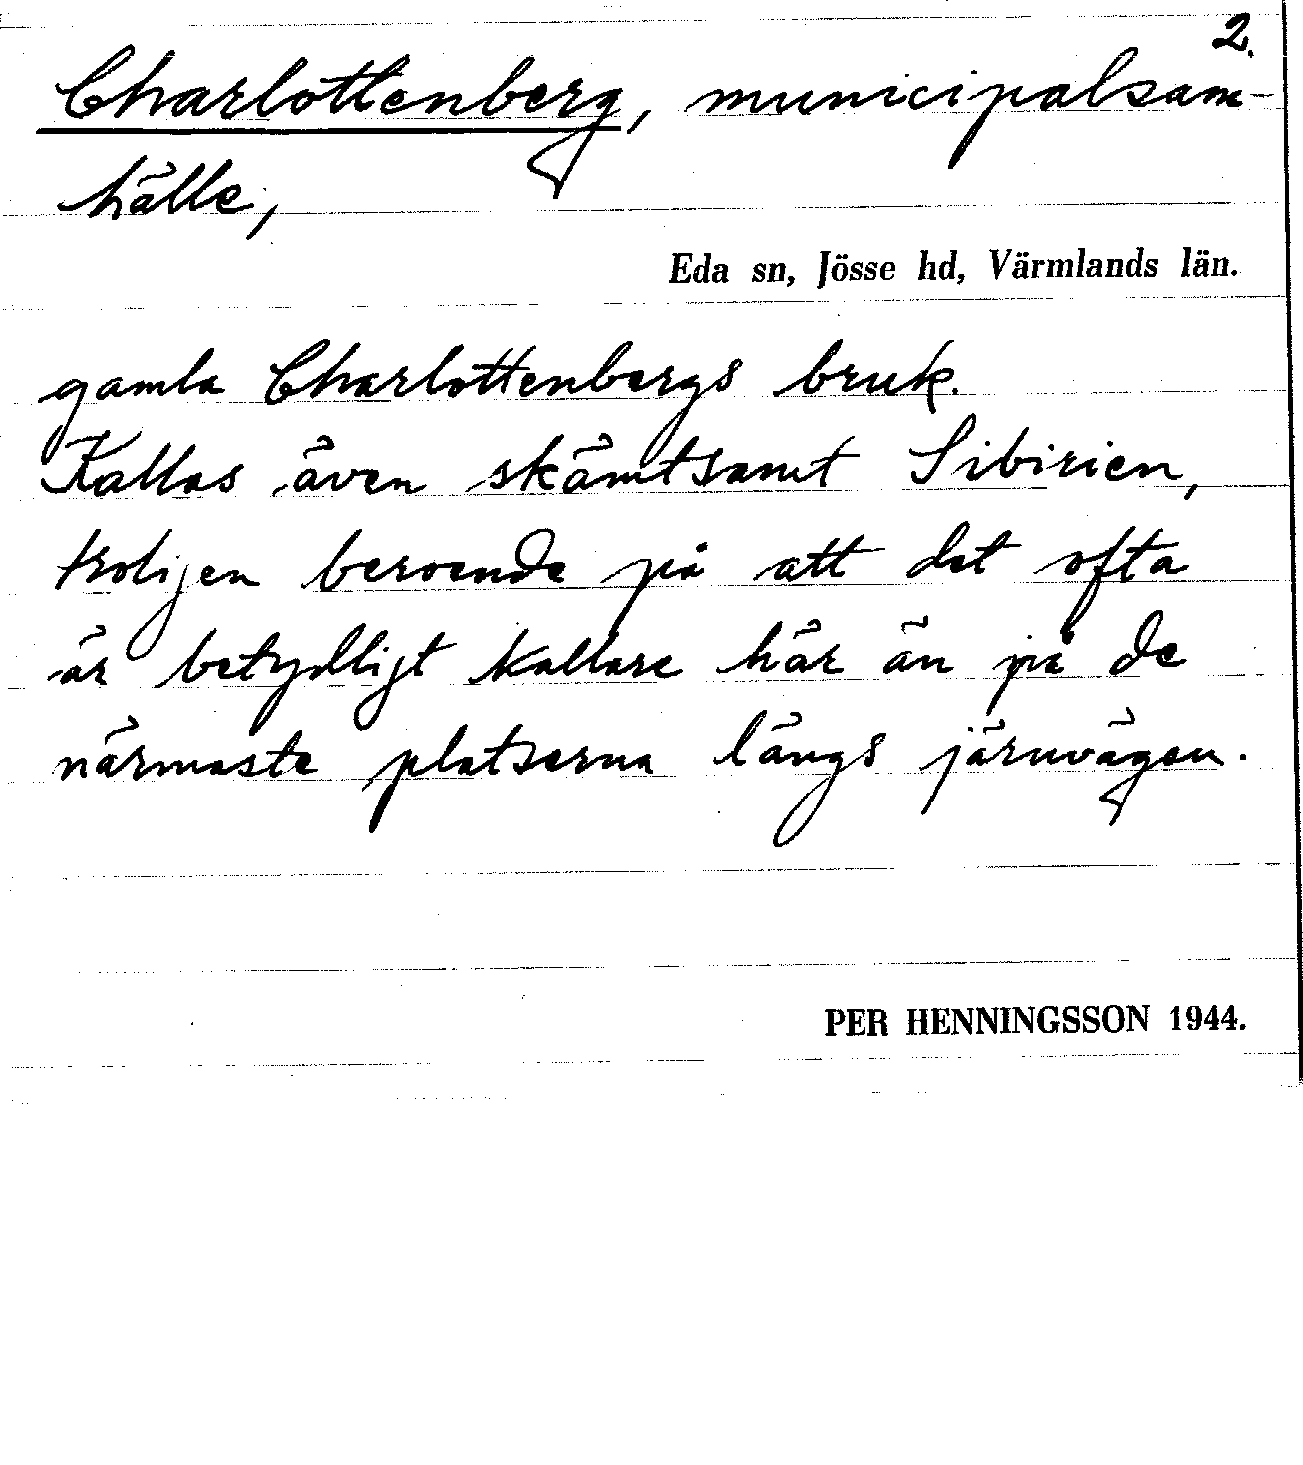 2.
Charlottenberg, municipalsam-
hälle,
Eda sn, Jösse hd, Värmlands län.
gamla Charlottenbergs bruk.
Kallas även skämtsamt Sibirien,
troligen beroende på att det ofta
är betydligt kallare här än på de
närmaste platserna längs järnvägen.
PER HENNINGSSON 1944.